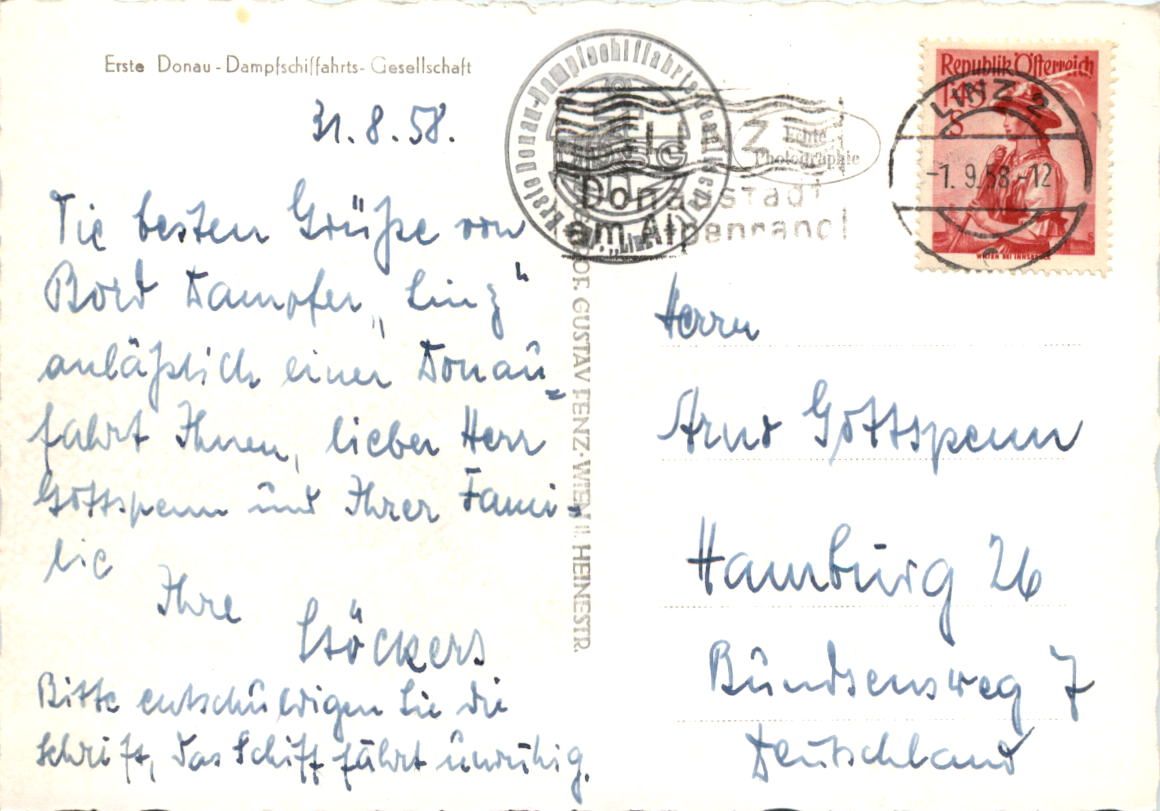 Erste Donau-Dampfschiffahrts-Gesellschaft
31.8.58.
Die besten Grüße von
Bord Dampfer „Linz“
anläßlich einer Donau=
fahrt Ihnen, lieber Herr
Gottspenn und Ihrer Fami=
lie
Ihre
Stöckers
Bitte entschuldigen Sie die
Schrift, das Schiff fährt unruhig.
Erste Donau-Dampfschiffahrts
LINZ
Donaustadt
am Alpenrand
Echte
Photographie
GUSTAV FENZ·WIEN II. HEINESTR.
Republik Österreich
S
WILTEN BEI INNSBRUCK
LINZ 2
-1. 9.58.-12
Herrn
Arno Gottspenn
Hamburg 26
Bundsensweg 7
Deutschland